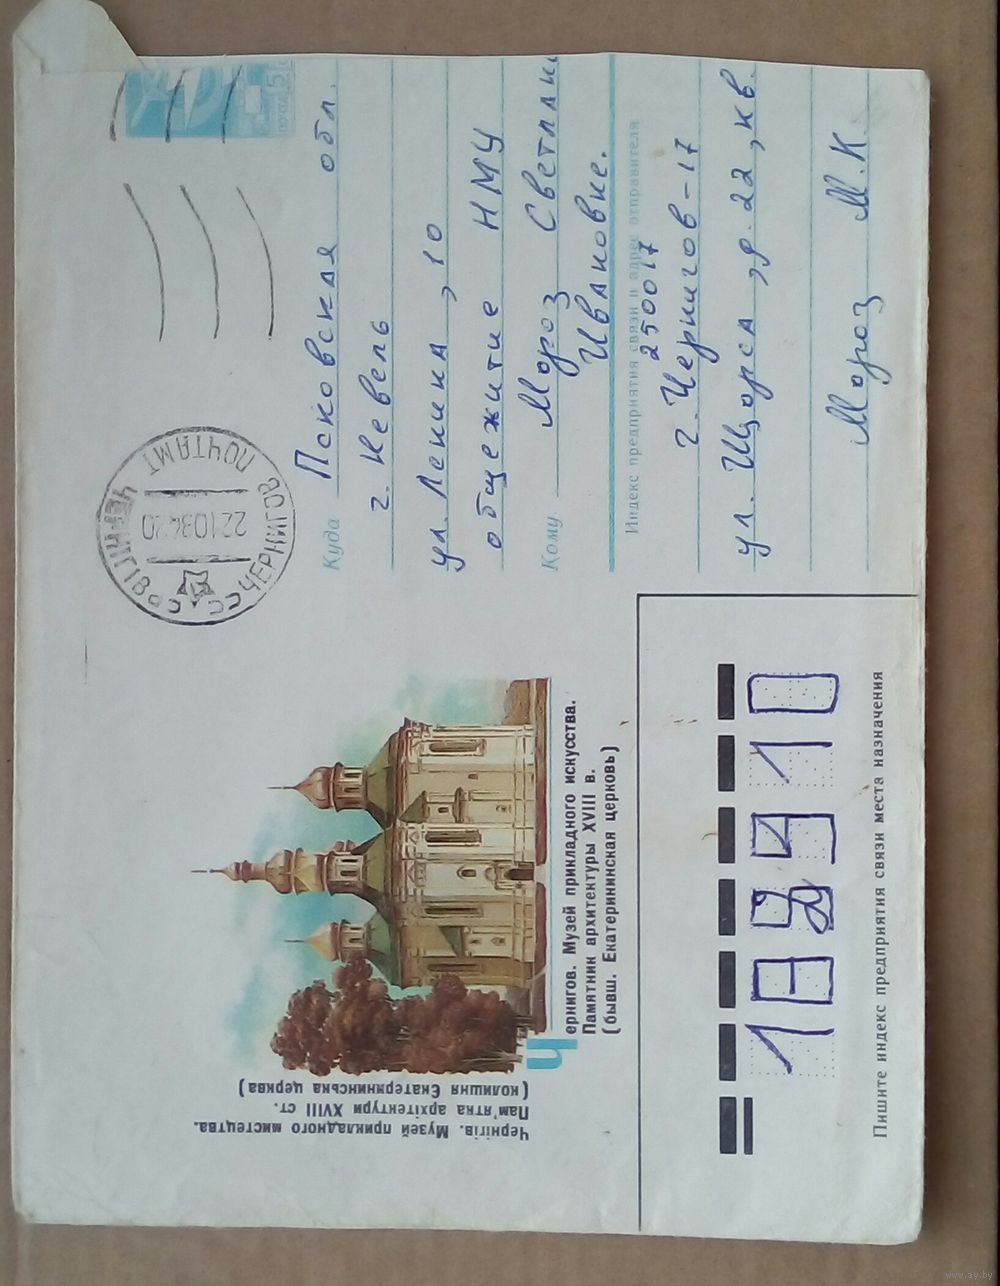 Чернігів. Музей прикладного мистецтва.
Пам'ятка архітектури XVIII ст.
(колишня Екатерининська церква)
Чернигов. Музей прикладного искусства.
Памятник архитектуры XVIII в.
(бывш. Екатерининская церковь)
ЧЕРНІГІВ ПОЧТАМТ
ЧЕРНИГОВ СССР
почта 5
Куда Псковская обл.
г. Невель
ул. Ленина, 10
общежитие НМУ
Кому Мороз
Ивановне.
Индекс предприятия связи и адрес отправителя
250017
г. Чернигов-17
ул. Щорса, д. 22, кв.
Мороз М.К.
Пишите индекс предприятия связи места назначения
www.ay.by